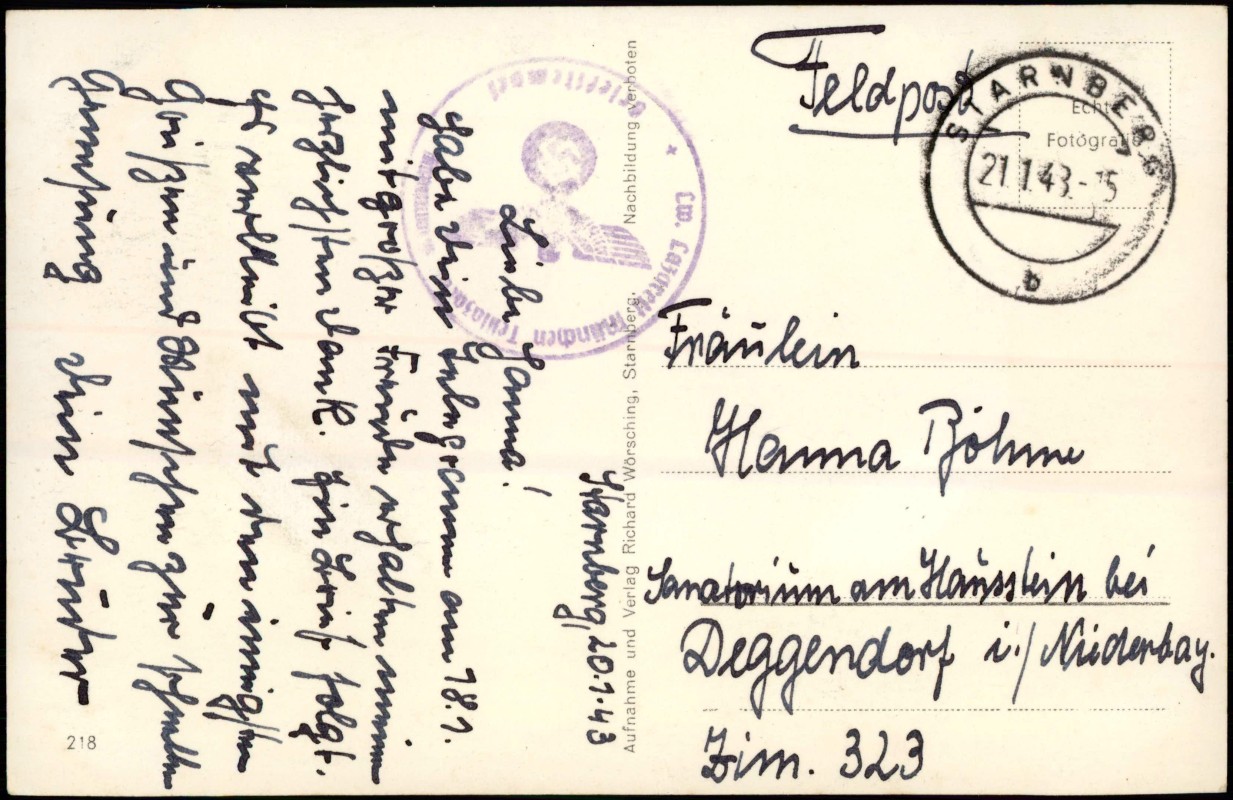 Feldpost
STARNBERG
21.1.43.-15
b
Echte
Fotografie
Fräulein
Hanna Böhme
Sanatorium am Hausstein bei
Deggendorf i./Niederbay.
Zim. 323
Starnberg, 20.1.43
Liebe Hanna!
Habe Dein Telegramm am 18.1.
mit großer Freude erhalten meinen
herzlichsten Dank. Ein Brief folgt.
Es verbleibt mit den innigsten
Grüßen und Wünschen zur schnellen
Genesung Dein Bruder
Briefstempel * Lw. Lazarett München
Aufnahme und Verlag Richard Wörsching, Starnberg. Nachbildung verboten
218